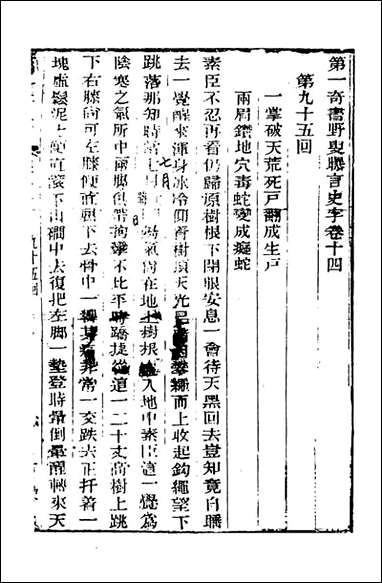 第一奇書野叟曝言史字卷十四
第九十五回
一掌破天荒死戸翻成生戸
兩眉鑽地穴毒蛇變成癡蛇
素臣不忍再看仍歸原樹根下閉眼安息一會待天黑回去豈知竟自睡
去一覺醒來渾身冰冷仰看樹頂天光已
而上收起鈎繩望下
跳落那知時
七月
氣尚在地
樹根
入地中素臣這一覺爲
陰寒之氣所中兩腳
拘攣不比平時蹻捷從這一二十丈高樹上跳
下右膝尚可左膝便直刺下去骨中一
非常一交跌去正扦着一
塊虛鬆泥土便直滾下山澗中去復把左脚一墊登時暈倒暈醒轉來天
九十五回